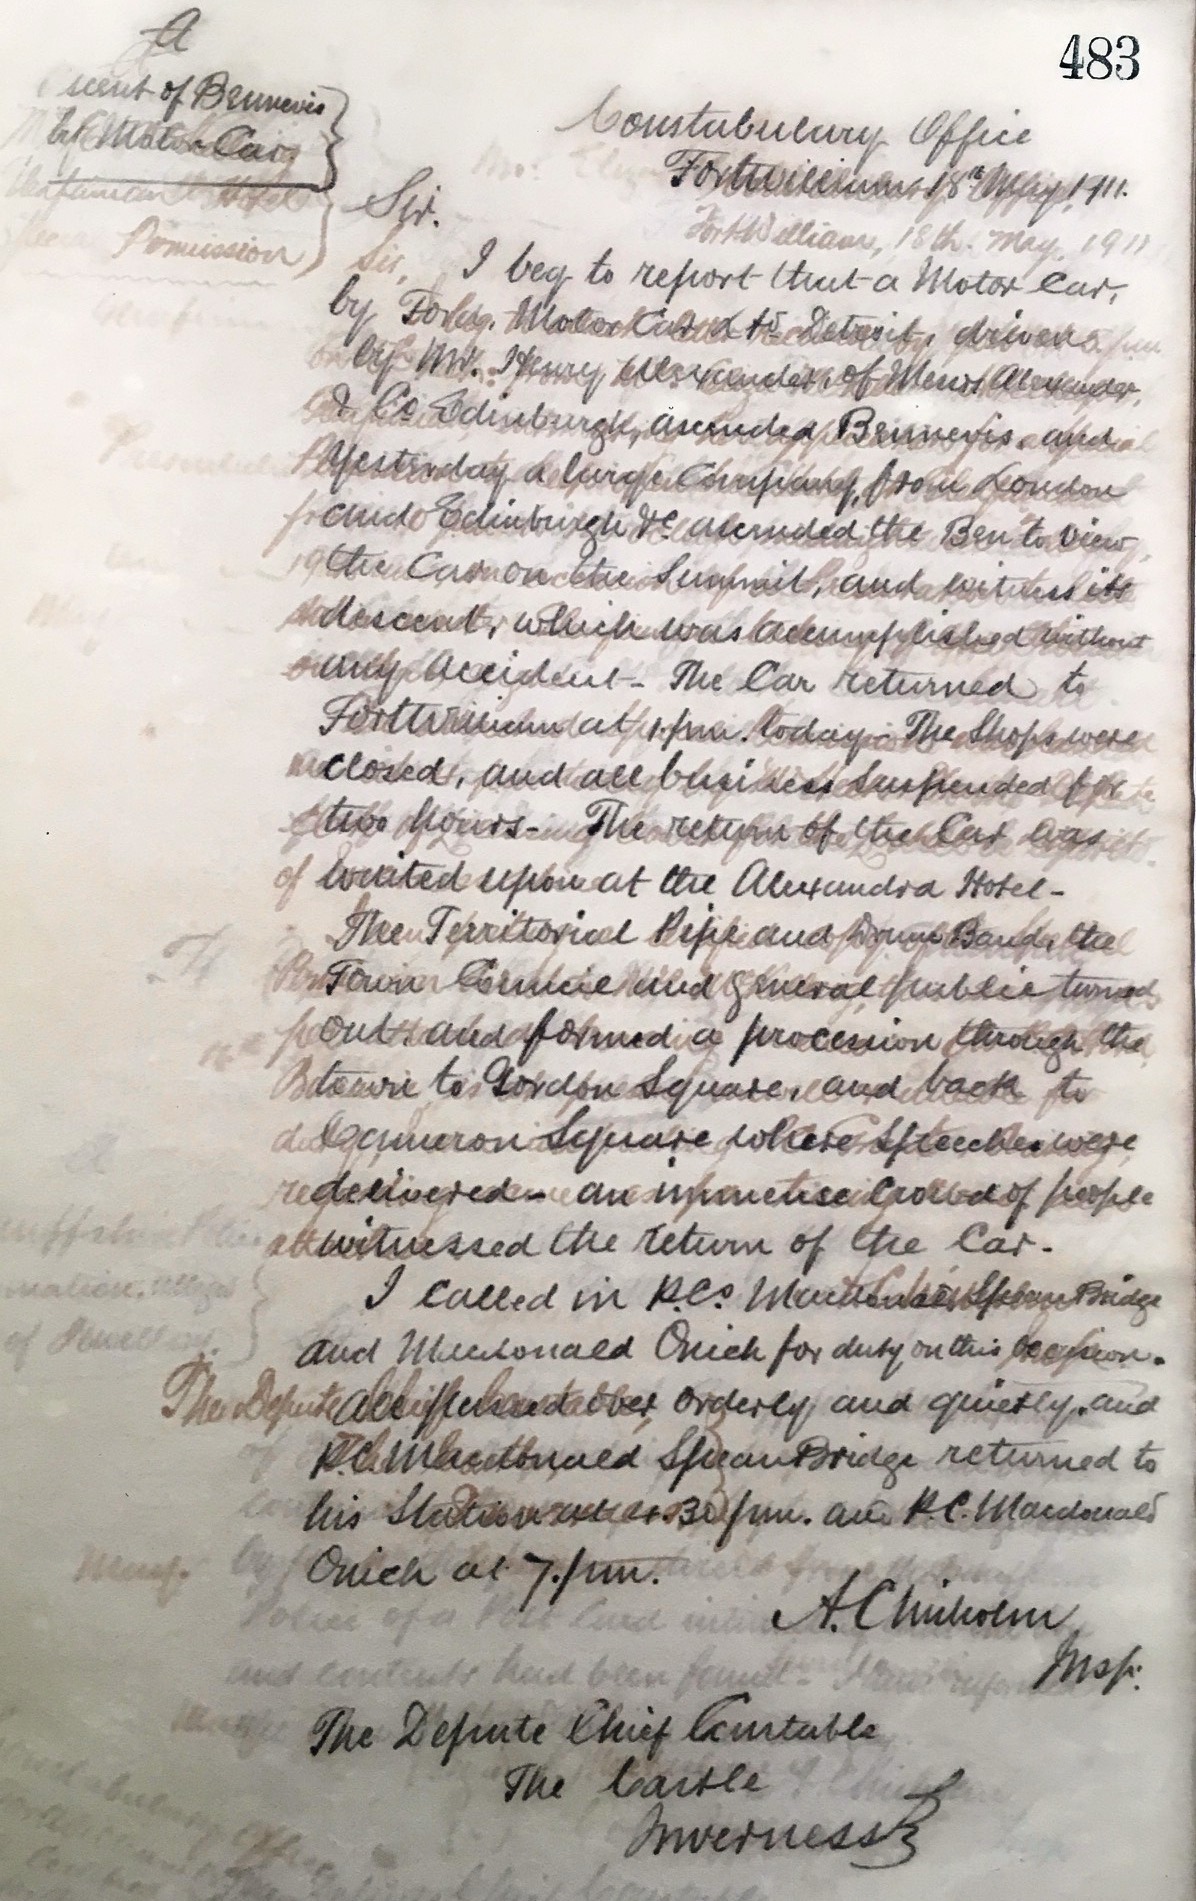 483
A
scent of Bennevis
by Motor Car
Constabulary Office
Fortwilliam 18th May, 1911.
Sir.
I beg to report that a Motor Car,
by Ford Motor Car Ltd Detroit, driven
by Mr. Henry Alexander, of Messrs Alexander,
& Co Edinburgh, ascended Bennevis, and
yesterday a large Company, from London
and Edinburgh &c ascended the Ben to view
the Car on the Summit, and witness its
descent, which was accomplished without
any accident - The Car returned to
Fortwilliam at 1.pm. today - The Shops were
closed, and all business suspended for
two hours - The return of the Car was
waited upon at the Alexandra Hotel -
The Territorial Pipe and Drum Band, the
Town Council and general public turned
out, and formed a procession through the
town to Gordon Square, and back to
Cameron Square where Speeches were
delivered - an immense Crowd of people
witnessed the return of the Car.
I called in P.Cs Macdonald, Spean Bridge
and Macdonald Onich for duty on this occasion.
All passed over orderly and quietly, and
P.C. Macdonald Spean Bridge returned to
his Station at 4.30 pm. and P.C. Macdonald
Onich at 7.pm.
A. Chisholm
Insp.
The Depute Chief Constable
The Castle
Inverness